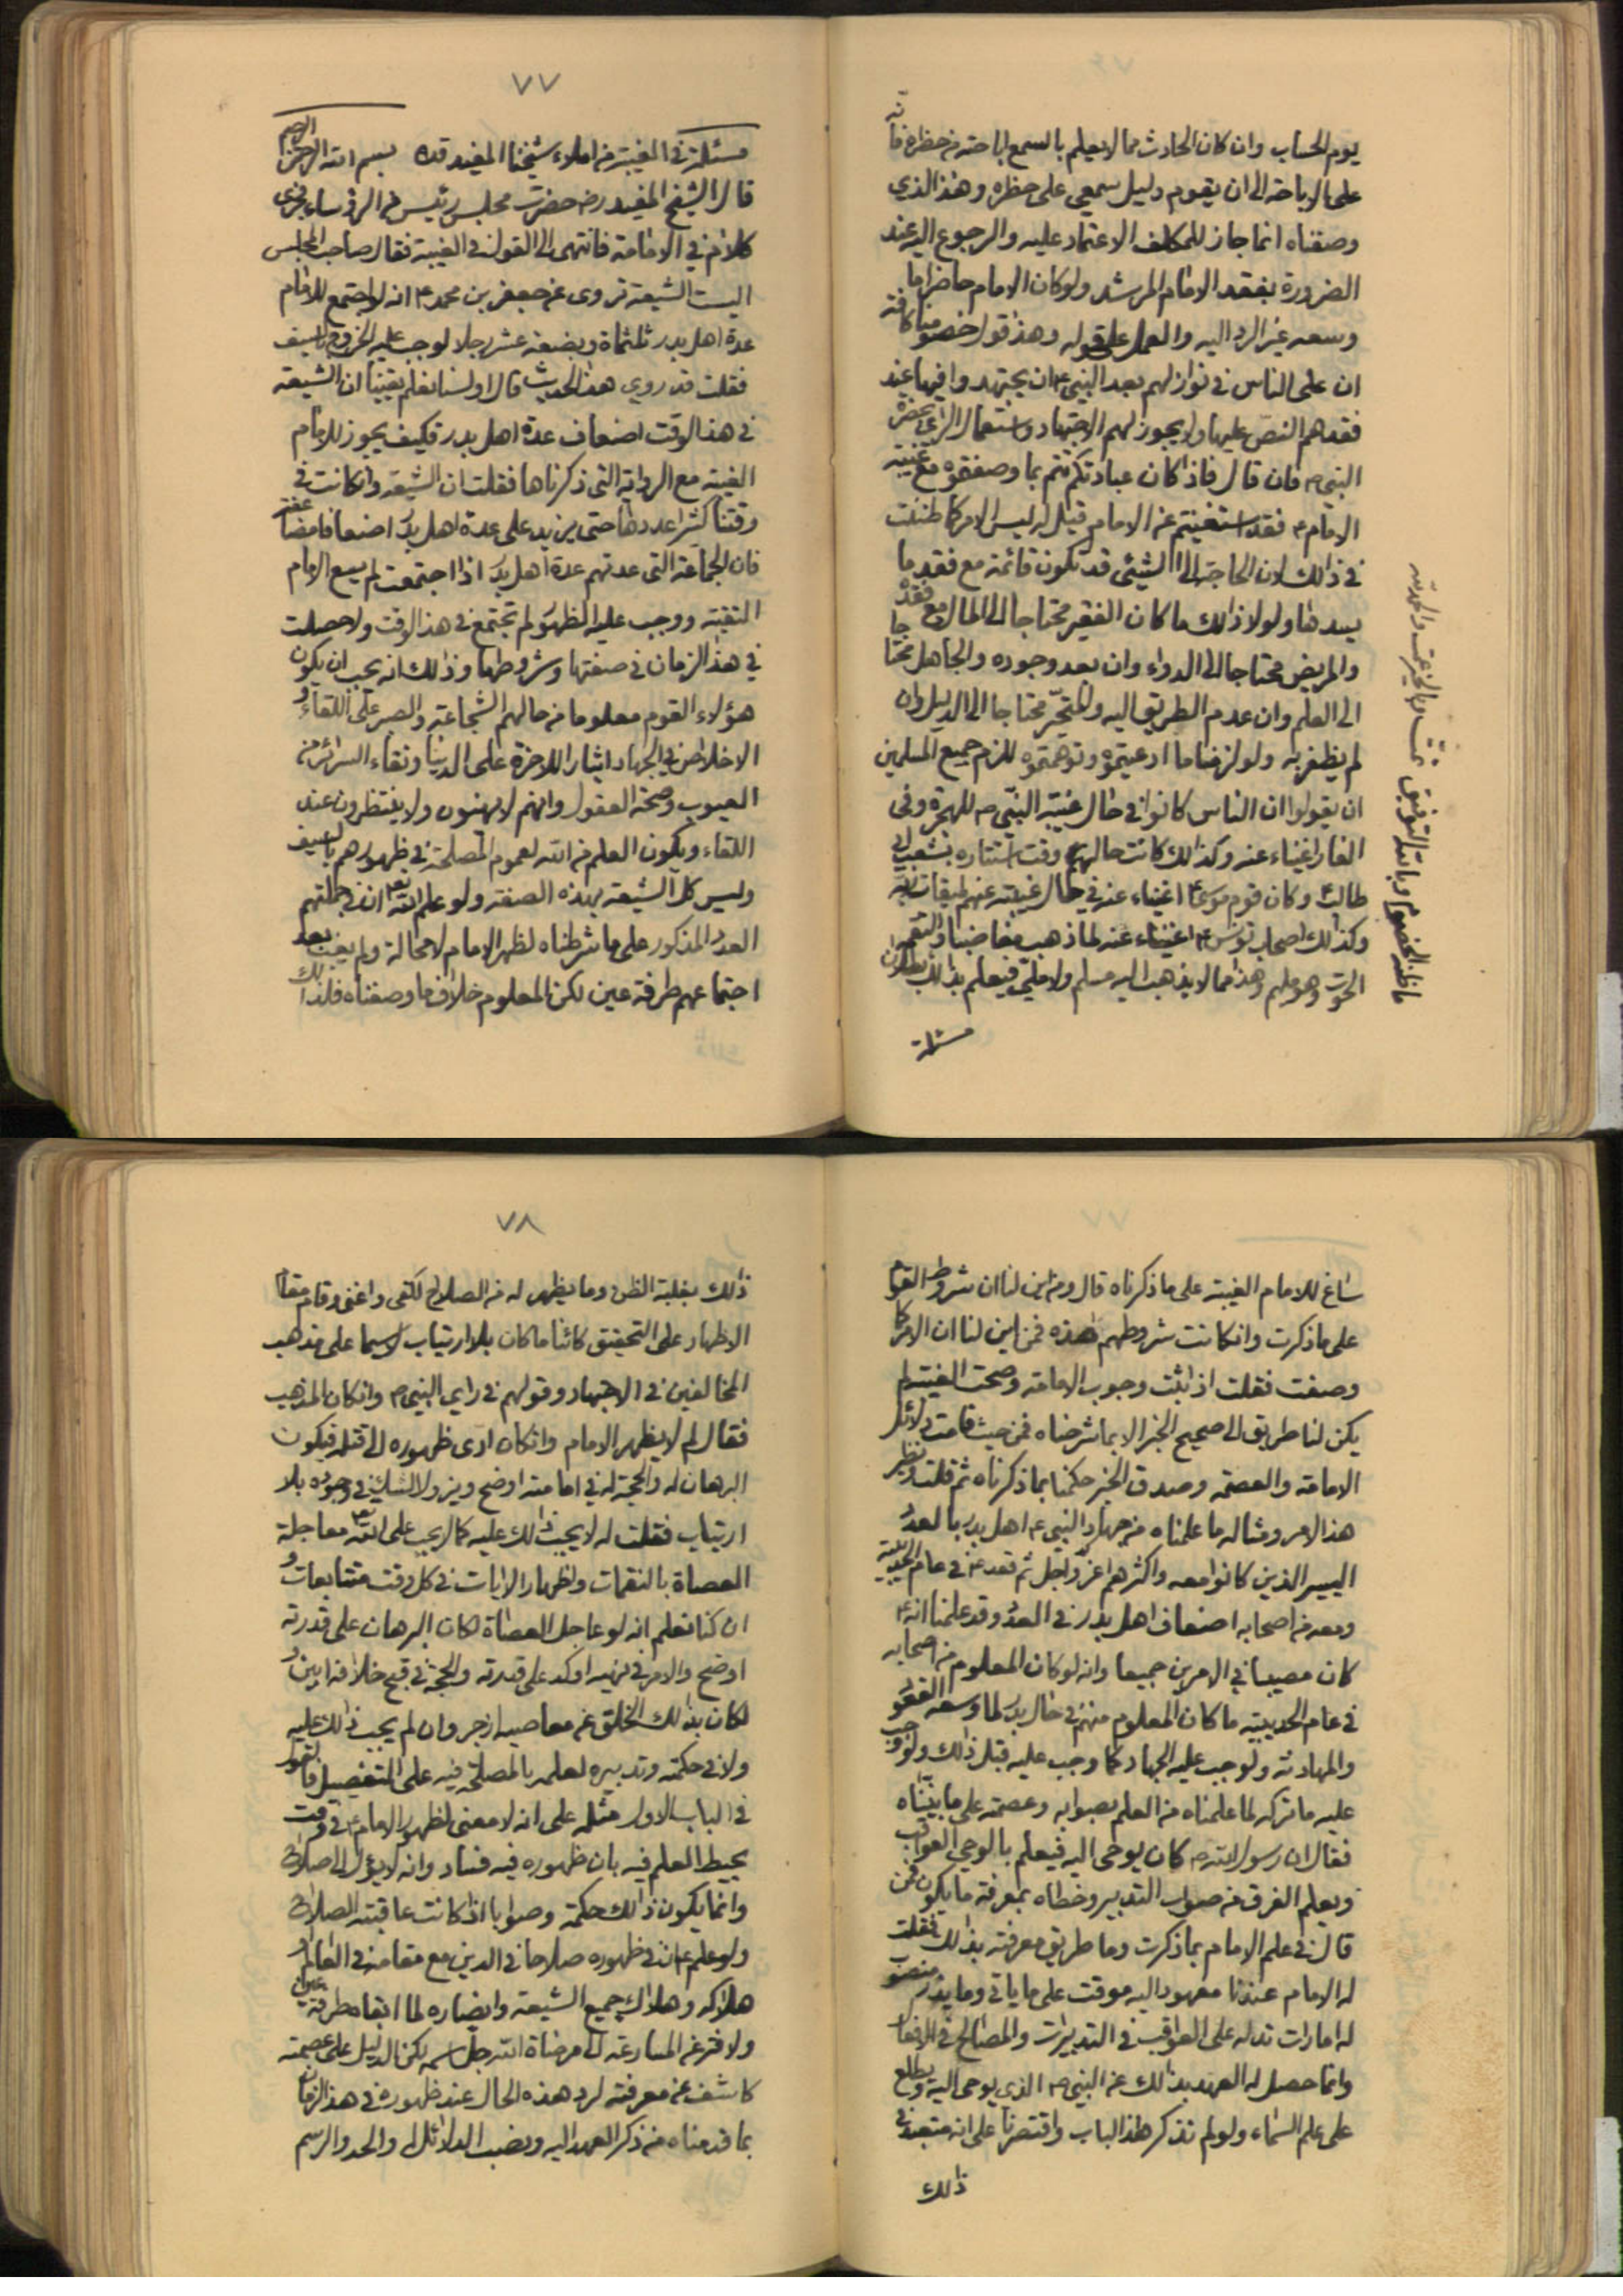 يوم الحساب وان كان الحادث مما لا يعلم بالسمع اباحته من حظره فانه
على الاباحة الى ان يقوم دليل سمعي على حظره وهذا الذي
وصفناه انما جاز للمكلف الاعتماد عليه والرجوع اليه عند
الضرورة بفقد الامام المرشد ولو كان الامام حاضرا ما
وسعه غير الرد اليه والعمل على قوله وهذا قول خصومنا كافة
ان على الناس في نوازلهم بعد النبي ص ان يجتهدوا فيها عند
فقدهم النص عليها ولا يجوز لهم الاجتهاد واستعمال الراي بحضرة
النبي ص فان قال فاذا كان عبادتكم تتم بما وصفتموه مع غيبة
الامام ع فقد استغنيتم عن الامام قيل له ليس الامر كما ظننت
في ذالك لان الحاجة الى الشيئ قد تكون قائمة مع فقد ما
يسدها ولولا ذالك ما كان الفقير محتاجا الى المال مع فقده
والمريض محتاجا الى الدواء وان بعد وجوده والجاهل محتاجا
الى العلم وان عدم الطريق اليه والمتحير محتاجا الى الدليل وان
لم يظفر به ولو لزمنا ما ادعيتموه وتوهمتموه للزم جميع المسلمين
ان يقولوا ان الناس كانوا في حال غيبة النبي ص للهجرة وفي
الغار اغنياء عنه وكذالك كانت حالهم وقت استتاره بشعب ابي
طالب ع وكان قوم موسى ع اغنياء عنه في حال غيبته عنهم لميقات ربه
وكذالك اصحاب يونس ع اغنياء عنه لما ذهب مغاضبا والتقمه
الحوت وهو مليم وهذا مما لا يذهب اليه مسلم ولا ملي فيعلم بذالك بطلان
ما ظنه الخصوم وبالله التوفيق تمت بالخير والحمد لله
مسئلة
٧٧
مسئلة في الغيبة من املاء شيخنا المفيد قده بسم الله الرحمن الرحيم
قال الشيخ المفيد رض حضرت مجلس رئيس من الرؤساء فجرى
كلام في الامامة فانتهى الى القول في الغيبة فقال صاحب المجلس
اليست الشيعة تروى عن جعفر بن محمد ع انه لو اجتمع للامام
عدة اهل بدر ثلثماة وبضعة عشر رجلا لوجب عليه الخروج بالسيف
فقلت قد روى هذا الحديث قال اولسنا نعلم يقينا ان الشيعة
في هذا الوقت اضعاف عدة اهل بدر فكيف يجوز للامام
الغيبة مع الرواية التي ذكرناها فقلت ان الشيعة وان كانت في
وقتنا كثيرا عددها حتى يزيد على عدة اهل بدر اضعافا مضاعفة
فان الجماعة التي عدتهم عدة اهل بدر اذا اجتمعت لم يسع الامام
التقية ووجب عليه الظهور لم تجتمع في هذا الوقت ولا حصلت
في هذا الزمان في صفتها وشروطها وذالك انه يجب ان يكون
هؤلاء القوم معلوما من حالهم الشجاعة والصبر على اللقاء و
الاخلاص في الجهاد ايثار اللاخرة على الدنيا ونقاء السرائر من
العيوب وصحة العقول وانهم لا يهنون ولا ينتظرون عند
اللقاء ويكون العلم من الله لعموم المصلحة في ظهورهم بالسيف
وليس كل الشيعة بهذه الصفة ولو علم الله تع ان في جملتهم
العدد المذكور على ما شرطناه لظهر الامام لا محالة ولم يغب بعد
اجتماعهم طرفة عين لكن المعلوم خلاف ما وصفناه فلذالك
ساغ للامام الغيبة على ما ذكرناه قال ومن اين لنا ان شروط القوم
على ما ذكرت وان كانت شروطهم هذه فمن اين لنا ان الامر كما
وصفت فقلت اذا ثبت وجوب الامامة وصحت الغيبة لم
يكن لنا طريق الى صحيح الخبر الا بما شرحناه فمن حيث قامت دلائل
الامامة والعصمة وصدق الخبر حكمنا بما ذكرناه ثم قلت ونظير
هذا الامر ومثاله ما علمناه من جهاد النبي ع اهل بدر بالعدد
اليسير الذين كانوا معه واكثرهم اعزل راجل ثم قعد ع في عام الحديبية
ومعه من اصحابه اضعاف اهل بدر في العدد وقد علمنا انه ع
كان مصيبا في الامرين جميعا وانه لو كان المعلوم من اصحابه
في عام الحديبية ما كان المعلوم منهم في حال بدر لما وسعه القعود
والمهادنة ولوجب عليه الجهاد كما وجب عليه قبل ذالك ولو وجب
عليه ما تركه لما علمناه من العلم بصوابه وعصمته على ما بيناه
فقال ان رسول الله ص كان يوحى اليه فيعلم بالوحي العواقب
ويعلم الفرق من صواب التدبير وخطاه بمعرفة ما يكون فمن
قال في علم الامام بما ذكرت وما طريق معرفته بذالك فقلت
له الامام عندنا معهود اليه موقت على ما ياتي وما يذر منصوب
له امارات تدله على العواقب في التدبيرات والمصالح في الافعال
وانما حصل له العهد بذالك عن النبي ص الذي يوحى اليه ويطلع
على علم السماء ولو لم نذكر هذا الباب واقتصرنا على انه متعبد في
ذالك
٧٨
ذالك بغلبة الظن وما يظهر له من الصلاح لكفى واغنى وقام مقام
الاظهار على التحقيق كائنا ما كان بلا ارتياب لاسيما على مذهب
المخالفين في الاجتهاد وقولهم في راى النبي ص وان كان المذهب
فقال لم لا يظهر الامام وان كان ادى ظهوره الى قتله فيكون
البرهان له والحجة له في امامته اوضح ويزول الشك في وجوده بلا
ارتياب فقلت له لا يجب ذالك عليه كما لا يجب على الله تع معاجلة
العصاة بالنقمات واظهار الايات في كل وقت متتابعات و
ان كنا نعلم انه لو عاجل العصاة لكان البرهان على قدرته
اوضح والامر في نهيه اوكد على قدرته والحجة في قبح خلافه ابين و
لكان بذالك الخلق عن معاصيه ازجر وان لم يجب ذالك عليه
ولا في حكمته وتدبيره لعلمه بالمصلحة فيه على التفصيل فالقول
في الباب الاول مثله على انه لا معنى لظهور الامام ع في وقت
يحيط العلم فيه بان ظهوره فيه فساد وانه لا يؤل الى اصلاح
وانما يكون ذالك حكمة وصوابا اذا كانت عاقبته الصلاح
ولو علم ع ان في ظهوره صلاحا في الدين مع مقامه في العالم او
هلاكه وهلاك جميع الشيعة وانصاره لما ابقاه طرفة عين
ولا فتر عن المسارعة الى مرضاة الله جل اسمه لكن الدليل على عصمته
كاشف عن معرفته لرد هذه الحال عند ظهوره في هذا الزمان
بما قدمناه من ذكر العهد اليه ونصب الدلائل له والحد والرسم